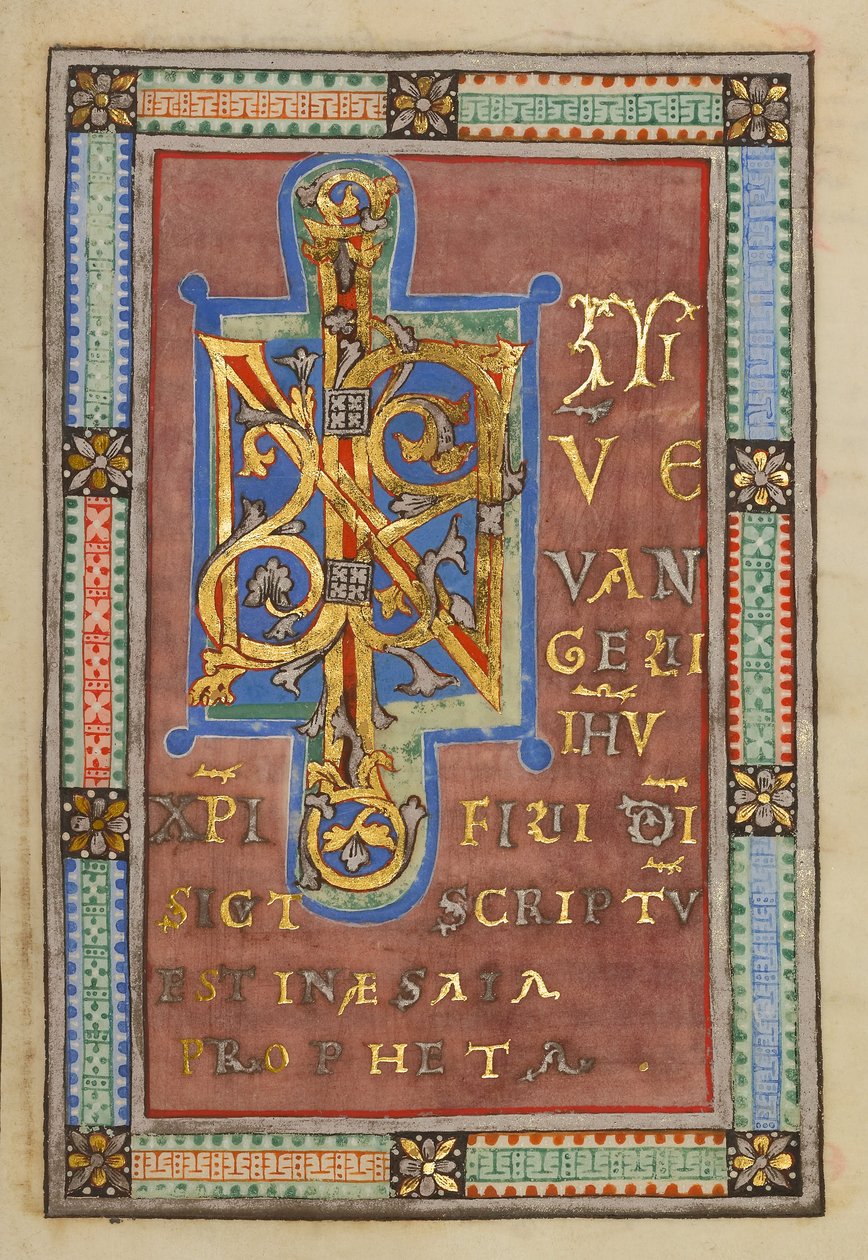 IN
ITI
V E
VAN
GELII
IH̅V
XP̅I FILII D̅I
SICVT SCRIPTV̅
EST IN ÆSAIA
PROPHETA .